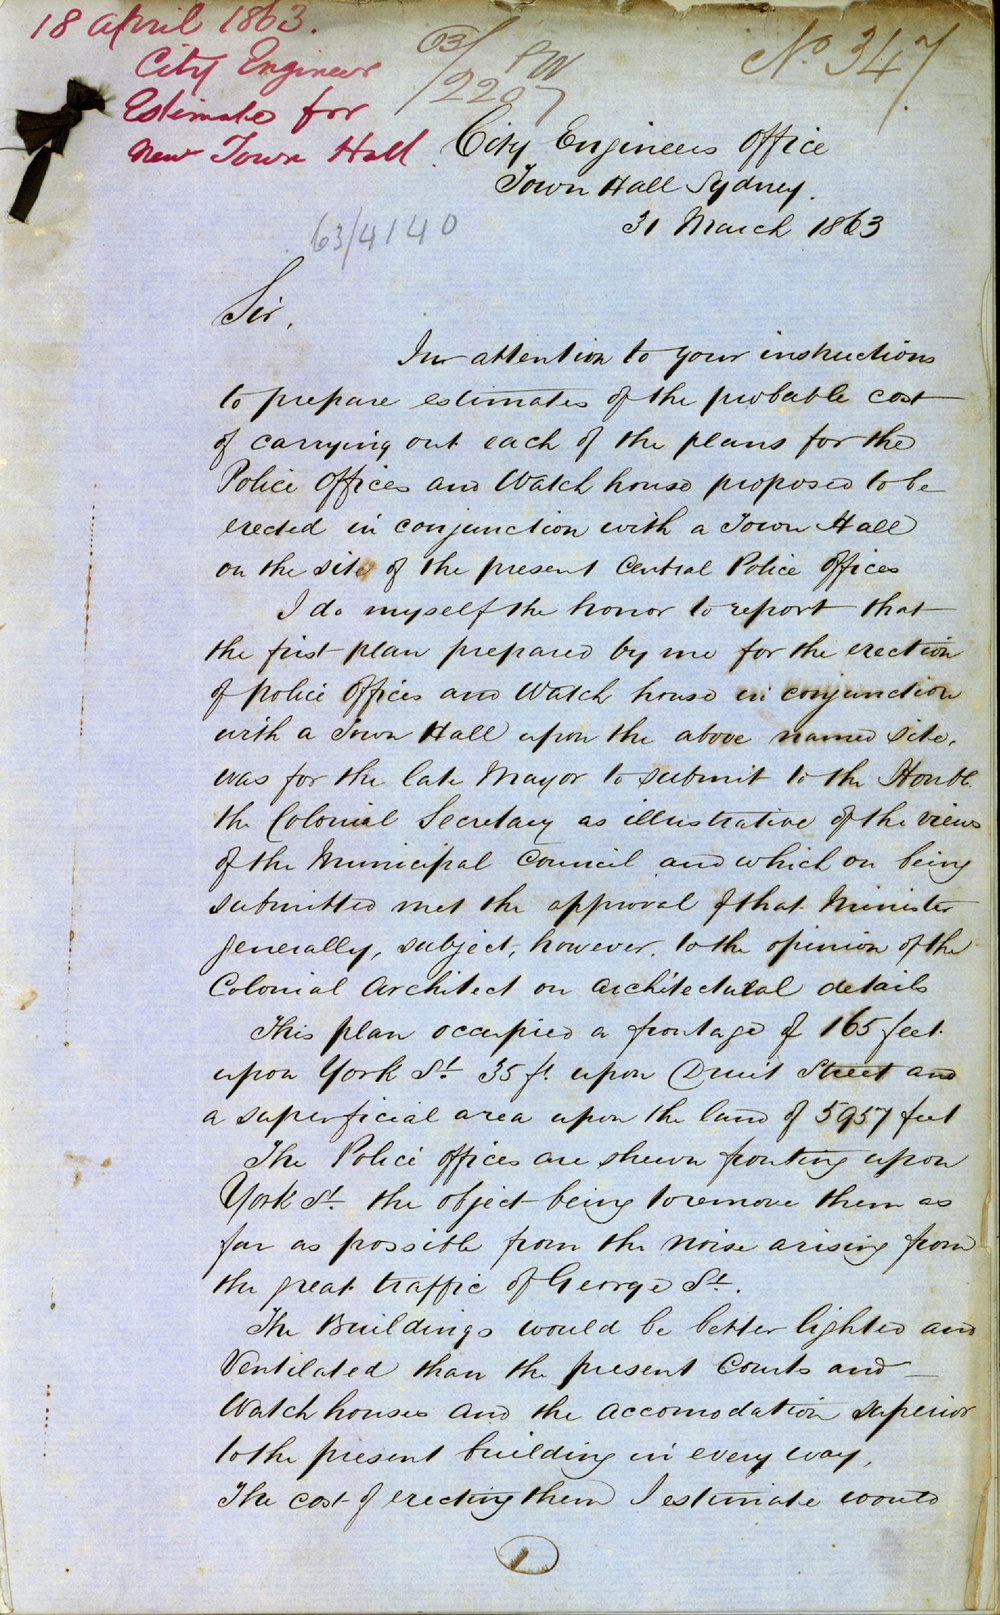 18 April 1863.
City Engineer
Estimate for
New Town Hall
03/
PW
2207
No. 347
City Engineers Office
Town Hall Sydney.
31 March 1863
63/4140
Sir,
In attention to your instructions
to prepare estimates of the probable cost
of carrying out each of the plans for the
Police Offices and Watch house proposed to be
erected in conjunction with a Town Hall
on the site of the present Central Police Offices
I do myself the honor to report that
the first plan prepared by me for the erection
of police Offices and Watch house in conjunction
with a Town Hall upon the above named site,
was for the late Mayor to submit to the Honble.
the Colonial Secretary as illustrative of the views
of the Municipal Council and which on being
submitted met the approval of that Minister
generally, subject, however, to the opinion of the
Colonial Architect on architectural details
This plan occupied a frontage of 165 feet.
upon York St. 35 ft. upon Druit Street and
a superficial area upon the land of 5957 feet
The Police offices are shewn fronting upon
York St. the object being to remove them as
far as possible from the noise arising from
the great traffic of George St.
The Buildings would be better lighted and
Ventilated than the present Courts and
Watch houses and the accomodation superior
to the present building in every way,
The cost of erecting them I estimate would
1